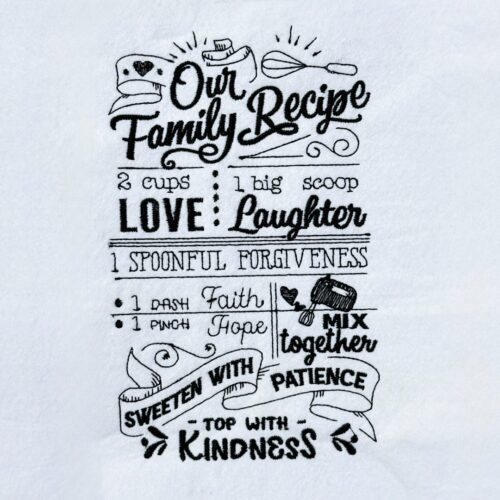 Our
Family Recipe
2 cups
LOVE
1 big scoop
Laughter
1 SPOONFUL FORGIVENESS
• 1 DASH Faith
• 1 PINCH Hope
MIX
together
SWEETEN WITH PATIENCE
- TOP WITH -
KINDNESS